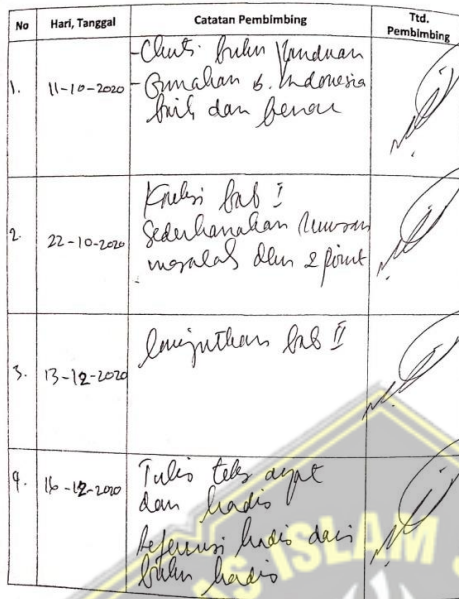 No Hari, Tanggal Catatan Pembimbing Ttd. Pembimbing
1. 11-10-2020 - buku Panduan
- Gunakan b. Indonesia
baik dan benar
2. 22-10-2020 Koreksi bab I
Sederhanakan rumusan
masalah 2 point
3. 13-12-2020 lanjutkan bab II
4. 16-12-2020 Tulis teks ayat
dan hadis
Referensi hadis dari
buku hadis
AS ISLAM